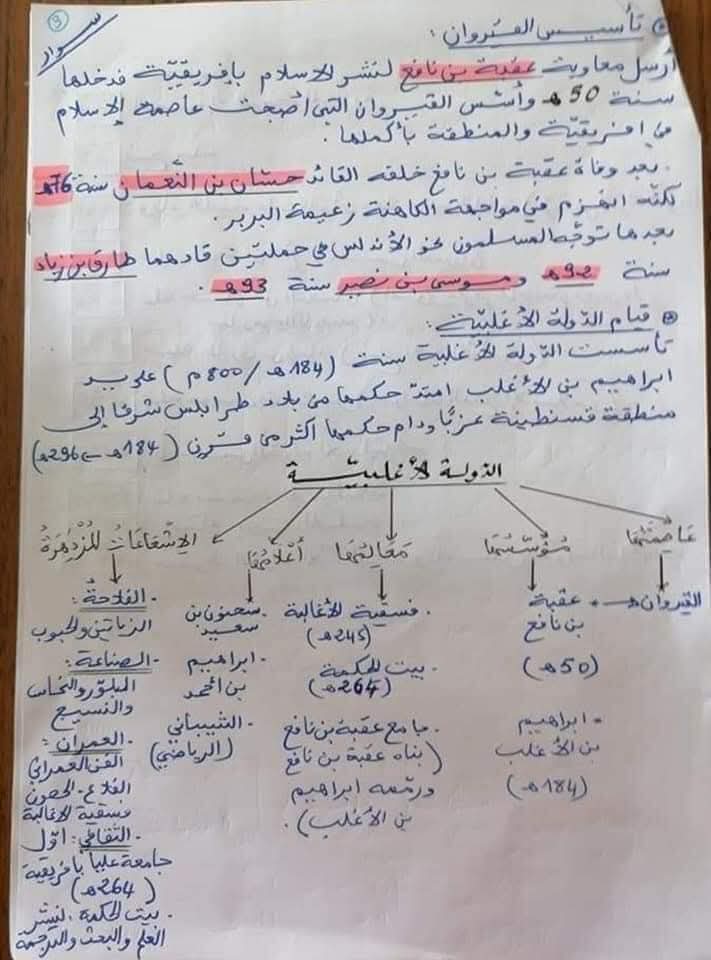 3
سوار
تأسيس القيروان :
أرسل معاوية عقبة بن نافع لنشر الإسلام بإفريقيّة فدخلها
سنة 50 هـ وأسّس القيروان التي أصبحت عاصمة الإسلام
في افريقيّة والمنطقة بأكملها .
بعد وفاة عقبة بن نافع خلفه القائد حسّان بن النّعمان سنة 76هـ
لكنّه انهزم في مواجهة الكاهنة زعيمة البربر .
بعدها توجّه المسلمون نحو الأندلس في حملتين قادهما طارق بن زياد
سنة 92هـ وموسى بن نصير سنة 93هـ .
قيام الدولة الأغلبيّة :
تأسست الدّولة الأغلبية سنة (184هـ / 800م) على يد
ابراهيم بن الأغلب امتدّ حكمها من بلاد طرابلس شرقا إلى
منطقة قسنطينة غربًا ودام حكمها أكثر من قرن (184هـ – 296هـ)
الدولة الأغلبيّة
عَاصِمَتُهَا
مُؤَسِّسُهَا
مَعَالِمُهَا
أَعْلَامُهَا
الإِشْعَاعَاتُ المُزْدَهِرَةُ
القيروان
عقبة
بن نافع
(50هـ)
- ابراهيم
بن الأغلب
(184هـ)
- فسقية الأغالبة
(245هـ)
- بيت الحكمة
(264هـ)
- جامع عقبة بن نافع
(بناه عقبة بن نافع
ورمّمه ابراهيم
بن الأغلب).
- سحنون بن
سعيد
- ابراهيم
بن احمد
- الشيباني
(الرياضي)
- الفلاحة :
الزياتين والحبوب
- الصناعة :
البلّور والنحاس
والنسيج
- العمران :
الفن العمراني
القلاع - الحصون
فسقية الأغالبة
- الثقافي : اوّل
جامعة عليا بافريقية
(264هـ)
- بيت الحكمة : لنشر
العلم والبحث والترجمة